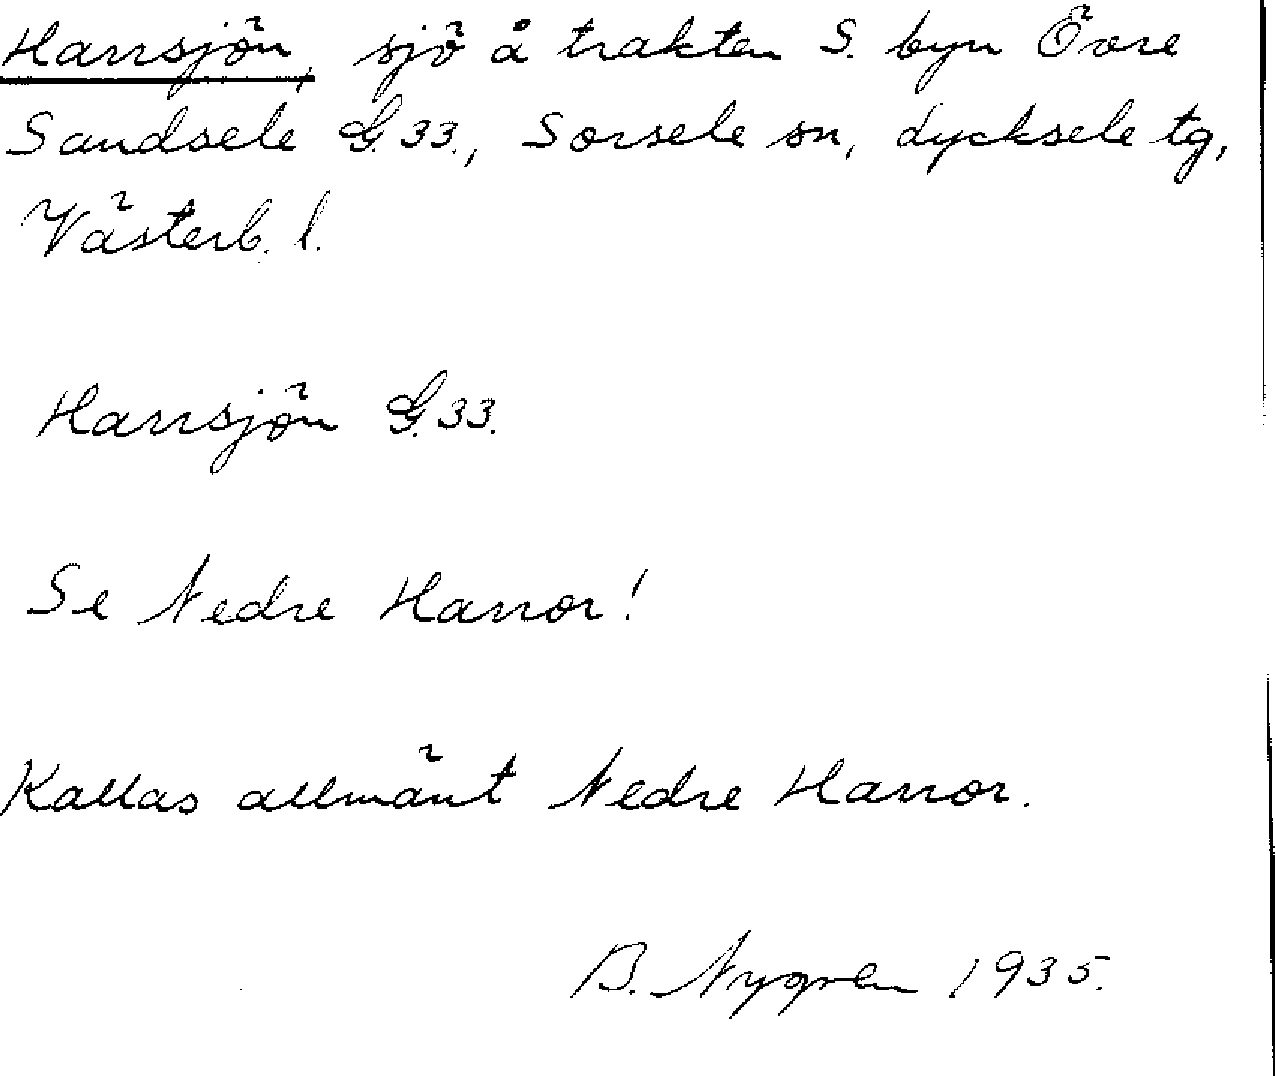 Harrsjön, sjö å trakten S. byn Övre
Sandsele G. 33., Sorsele sn, Lycksele tg,
Västerb. l.
Harrsjön G. 33.
Se Nedre Harror!
Kallas allmänt Nedre Harror.
B. Nygren 1935.